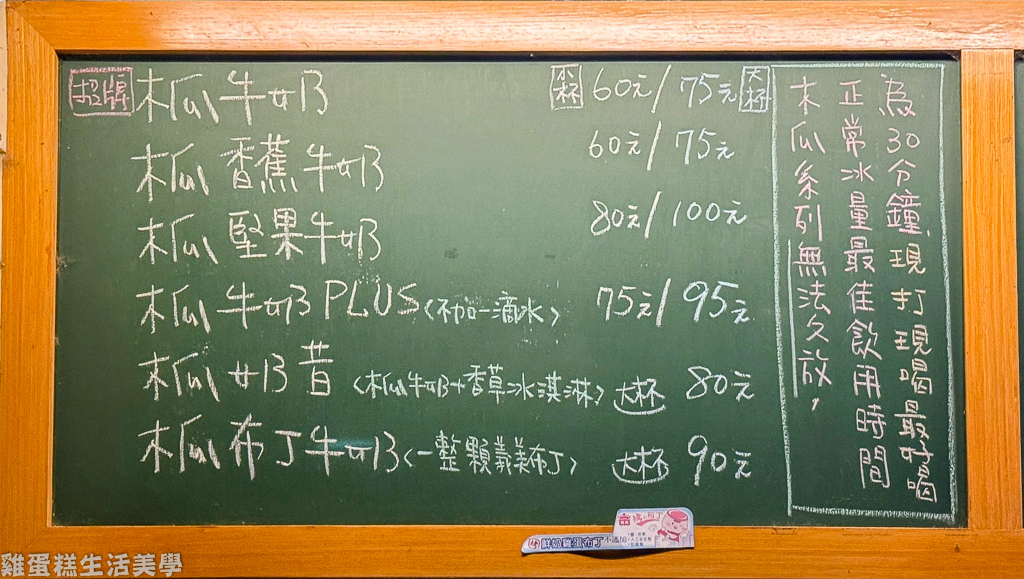 招牌 木瓜牛奶 小杯 60元/75元 大杯
木瓜香蕉牛奶 60元/75元
木瓜堅果牛奶 80元/100元
木瓜牛奶PLUS(不加一滴水) 75元/95元
木瓜奶昔(木瓜牛奶+香草冰淇淋) 大杯 80元
木瓜布丁牛奶(一整顆義美布丁) 大杯 90元
為30分鐘,現打現喝最好喝
正常冰量最佳飲用時間
木瓜系列無法久放,
布丁
鮮奶雞蛋布丁
雞蛋糕生活美學